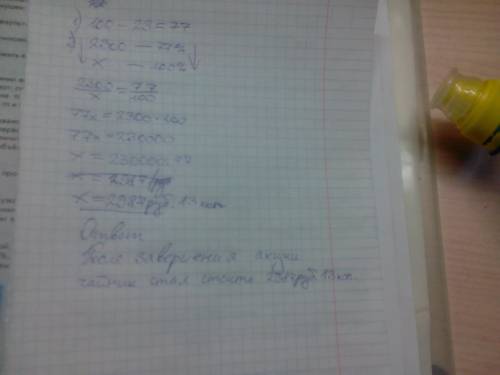 1) 100 - 23 = 77
2) 2300 — 77%
x — 100%
2300/x = 77/100
77x = 2300·100
77x = 230000
x = 230000:77
x = 2987руб. 13 коп
Ответ
После завершения акции
чайник стал стоить 2987руб. 13 ко.